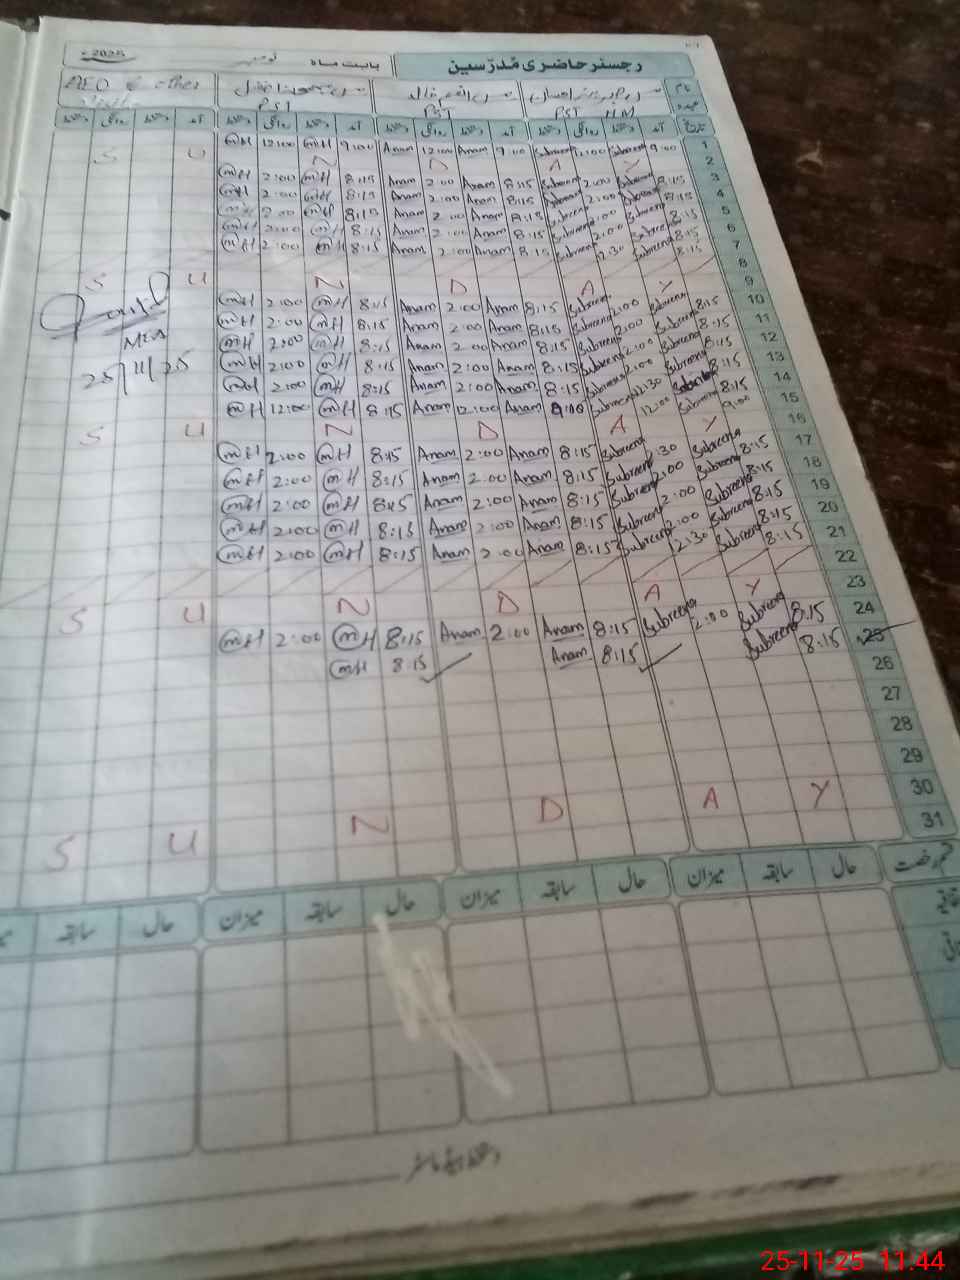 رجسٹر حاضری مُدرّسین
بابت ماہ نومبر 2025
نام
عہدہ
PST HM
PST
PST
AEO & other
تاریخ آمد دستخط روانگی دستخط آمد دستخط روانگی دستخط آمد دستخط روانگی دستخط آمد دستخط روانگی دستخط
1 9:00 Subreena 12:00 Subreena 9:00 Anam 12:00 Anam 9:00 mH 12:00 mH
2 S U N D A Y
3 8:15 Subreena 2:00 Subreena 8:15 Anam 2:00 Anam 8:15 mH 2:00 mH
4 8:15 Subreena 2:00 Subreena 8:15 Anam 2:00 Anam 8:15 mH 2:00 mH
5 8:15 Subreena 2:00 Subreena 8:15 Anam 2:00 Anam 8:15 mH 2:00 mH
6 8:15 Subreena 2:00 Subreena 8:15 Anam 2:00 Anam 8:15 mH 2:00 mH
7 8:15 Subreena 12:30 Subreena 8:15 Anam 2:00 Anam 8:15 mH 2:00 mH
8
9 S U N D A Y
10 8:15 Subreena 2:00 Subreena 8:15 Anam 2:00 Anam 8:15 mH 2:00 mH
11 8:15 Subreena 2:00 Subreena 8:15 Anam 2:00 Anam 8:15 mH 2:00 mH
12 8:15 Subreena 2:00 Subreena 8:15 Anam 2:00 Anam 8:15 mH 2:00 mH
13 8:15 Subreena 2:00 Subreena 8:15 Anam 2:00 Anam 8:15 mH 2:00 mH
14 8:15 Subreena 12:30 Subreena 8:15 Anam 2:00 Anam 8:15 mH 2:00 mH
15 9:00 Subreena 12:00 Subreena 9:00 Anam 12:00 Anam 8:15 mH 12:00 mH
16 S U N D A Y
17 8:15 Subreena 2:30 Subreena 8:15 Anam 2:00 Anam 8:15 mH 2:00 mH
18 8:15 Subreena 2:00 Subreena 8:15 Anam 2:00 Anam 8:15 mH 2:00 mH
19 8:15 Subreena 2:00 Subreena 8:15 Anam 2:00 Anam 8:15 mH 2:00 mH
20 8:15 Subreena 2:00 Subreena 8:15 Anam 2:00 Anam 8:15 mH 2:00 mH
21 8:15 Subreena 2:30 Subreena 8:15 Anam 2:00 Anam 8:15 mH 2:00 mH
22
23 S U N D A Y
24 8:15 Subreena 2:00 Subreena 8:15 Anam 2:00 Anam 8:15 mH 2:00 mH
25 8:15 Subreena 8:15 Anam 8:15 mH
26
27
28
29
30 S U N D A Y
31
MEA
25/11/25
قسم رخصت حال سابقہ میزان حال سابقہ میزان حال سابقہ میزان حال سابقہ
دستخط ہیڈ ماسٹر
25-11-25 11:44